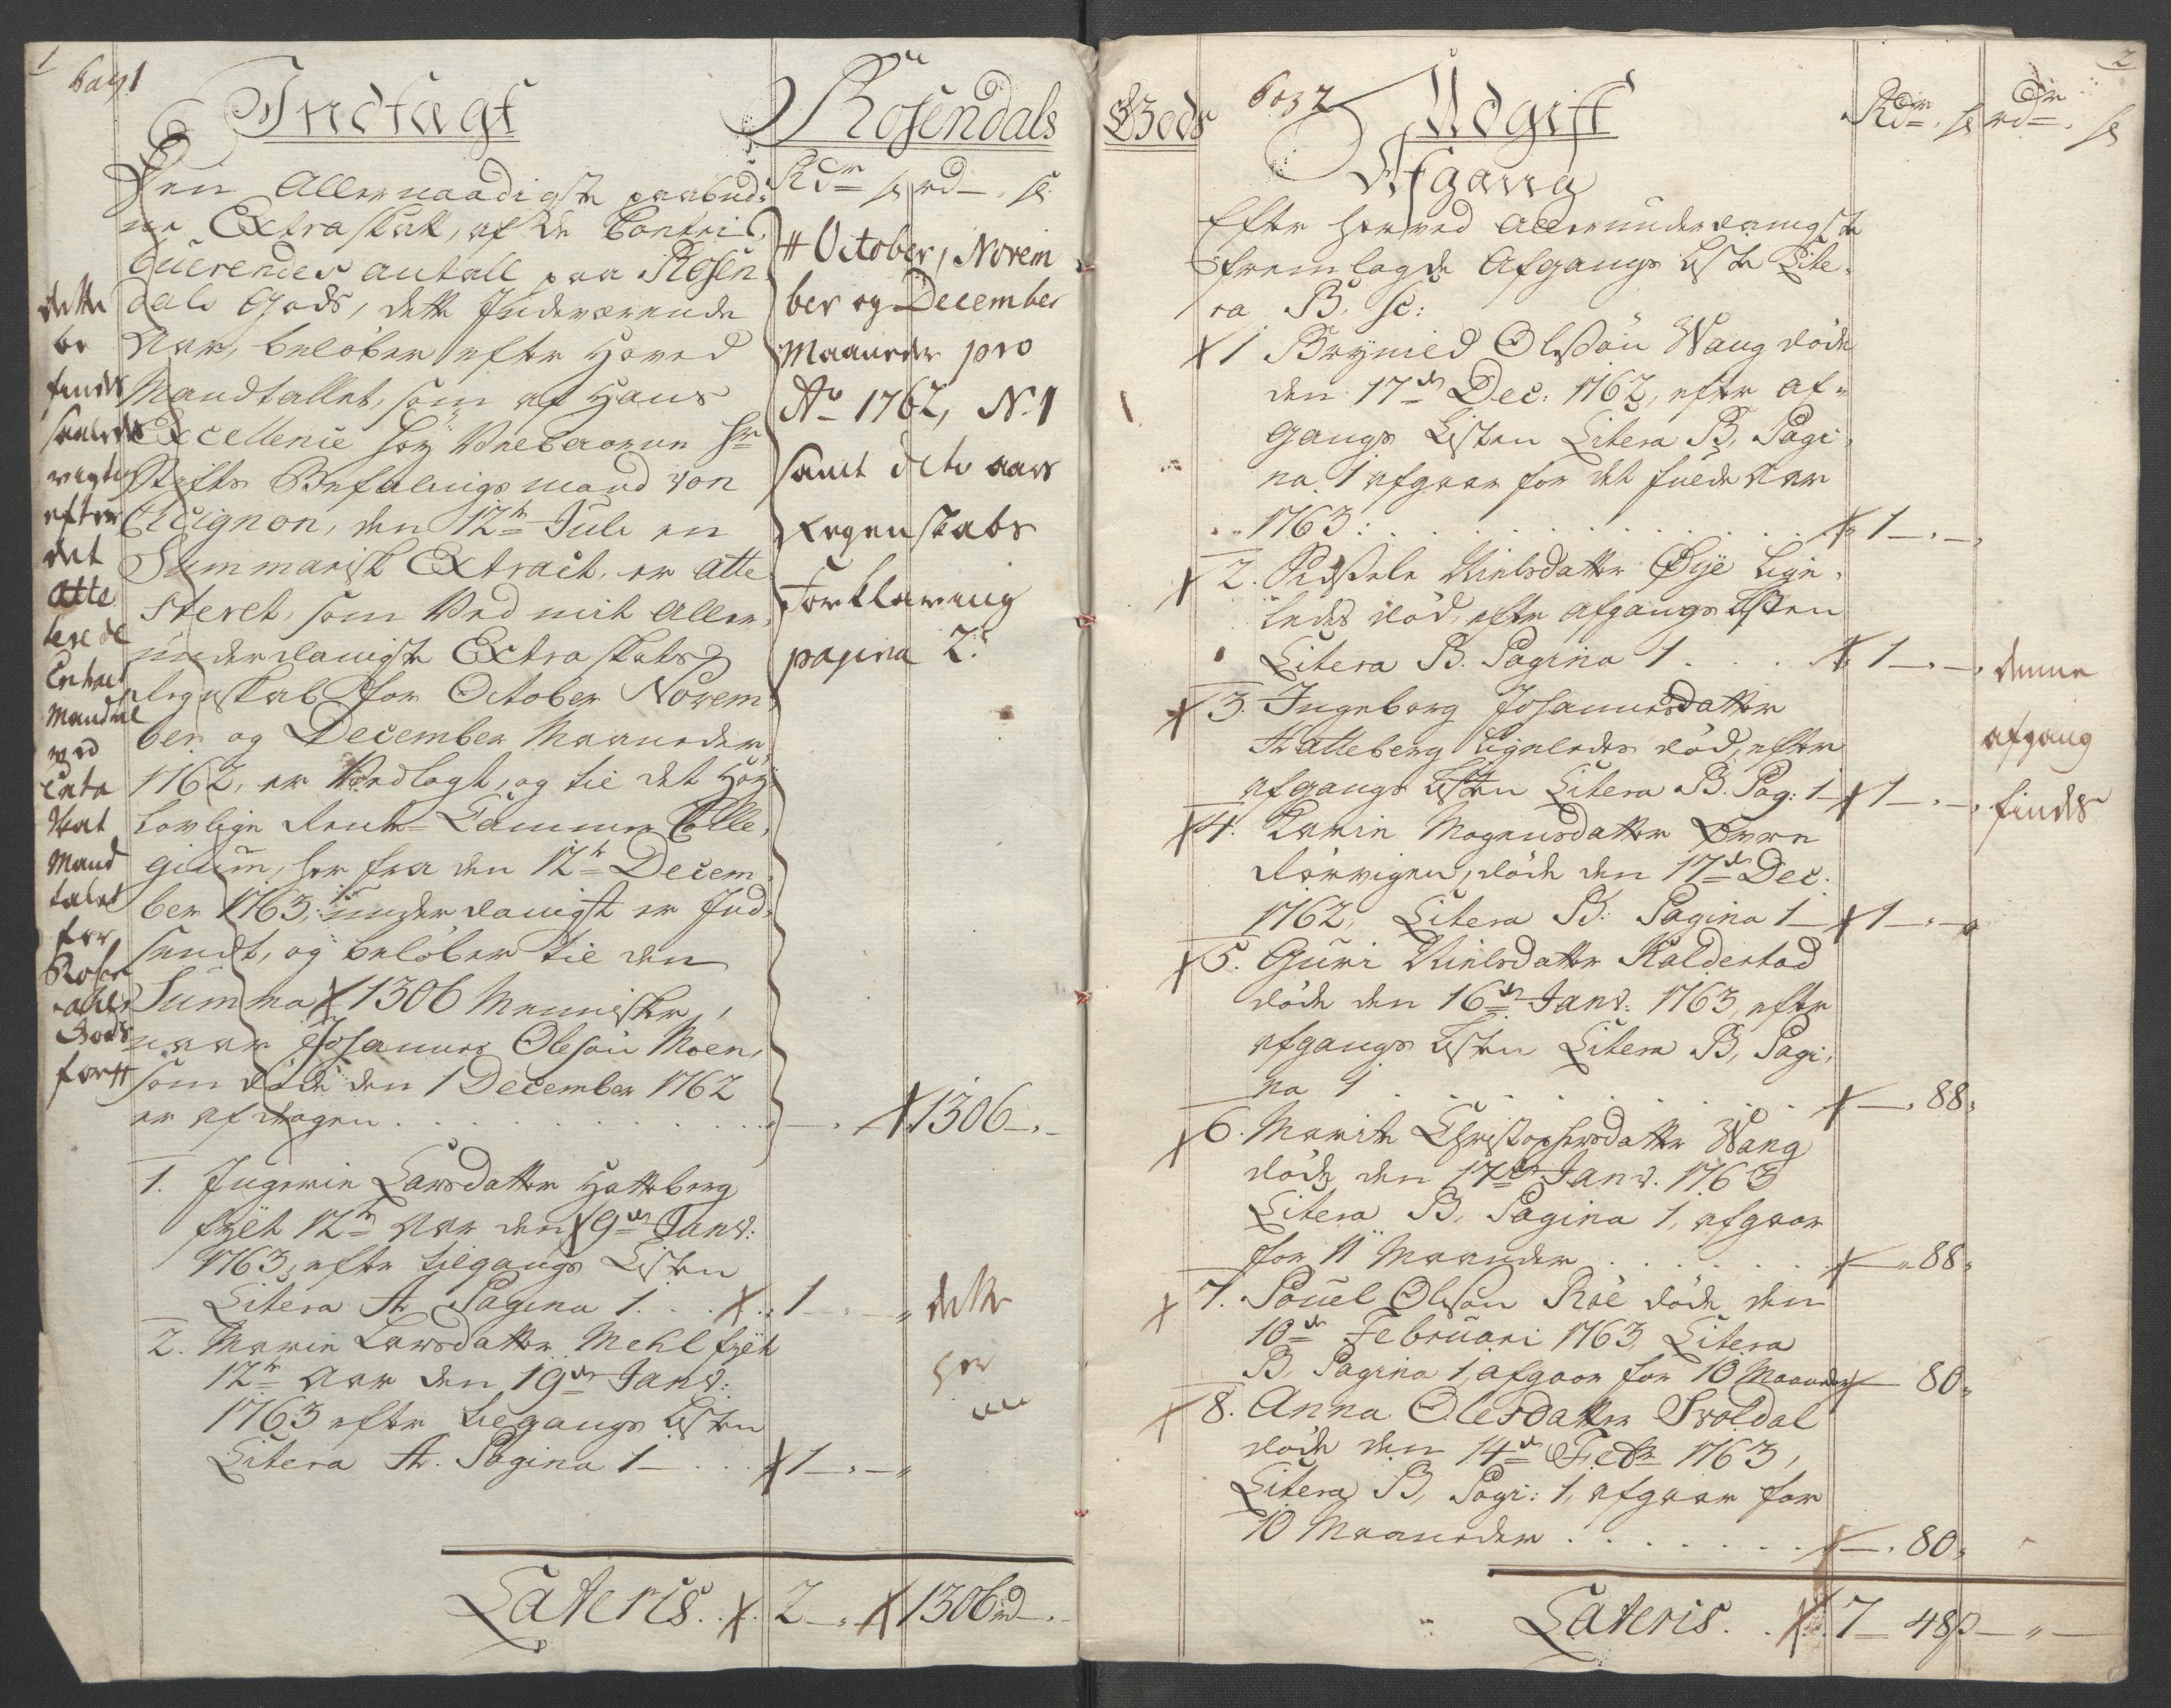 1
pag 1
Indtægt
Rosendals
Rdr ß rd ß
Den Allernaadigste paabud-
ne Extraskatt, af de Contri-
buerendes antall paa Rosen-
dals Gods, dette Indeværende
Aar, beløber efter Hoved
Mandtallet, som af Hans
Excellence Høy Velbaarne Hr
Stifts Befalingsmand von
Cicignon, den 12te Juli en
Summarisk Extract, er atte-
steret, som Ved mit Aller-
underdanigste Extraskats
Regnskab for October Novem-
ber og December Maaneder
1762, er Vedlagt, og til det Høy-
lovlige Rente-Cammer Colle-
gium, her fra den 12te Decem-
ber 1763, underdanigst er Ind-
sendt, og beløber til den
Summa 1306 Mennisker,
naar Johannes Olesøn Moen,
som døde den 1 December 1762
er afdragen 1306
dette
be
findes
saaledes
rigtig
efter
det
atte
terede
Extract
Mandtal
ved
Extra
Skat
Mand
talet
for
Rosen
dahls
Gods
for #
# October, Novem
ber og December
Maaneder pro
Ao 1762, N. 1
samt dito aars
Regenskabs
Forklaring
pagina 2.
1. Ingerie Larsdatter Hatteberg
fylt 12te Aar den 19de Janv:
1763, efter tilgangs Listen
Litera A Pagina 1 1
2. Marie Larsdatter Mehl fylt
12te Aar den 19de Janv:
1763 efter tilgangs Listen
Litera A. Pagina 1 1
dette
Lateris 2 1306 rd
2
Gods
pag 2
Udgift
Rdr ß rdr ß
Afgang
Efter herved Allerunderdanigste
fremlagde Afgangs Liste Lite-
ra B, sc:
1 Brynild Olsøn Wang døde
den 17de Dec: 1762, efter af-
gangs Listen Litera B, Pagi-
na 1 afgaar for det fulde Aar
1763: 1
2. Sidsele Nielsdatter Øye lige-
ledes død, efter afgangs Listen
Litera B. Pagina 1 1
3. Ingeborg Johannesdatter
Hatteberg ligeledes død, efter
afgangs Listen Litera B. Pag: 1 1
4. Karie Mogensdatter Øvre
Rørvigen, døde den 17de Dec.
1762, Litera B: Pagina 1 1
5. Guri Nielsdatter Kaldestad
døde den 16de Janv: 1763, efter
afgangs Listen Litera B, Pagi-
na 1 88
6. Marite Christophersdatter Wang
døde den 17de Janv. 1763
Litera B, Pagina 1, afgaar
for 11 Maaneder 88
7. Pouel Olsøn Roe døde den
10de Februari 1763, Litera
B, Pagina 1, afgaar for 10 Maaneder 80
8. Anna Olesdatter Svoldal
døde den 14de Febr 1763,
Litera B, Pagi: 1, afgaar for
10 Maaneder 80
denne
afgang
findes
Lateris 7 48